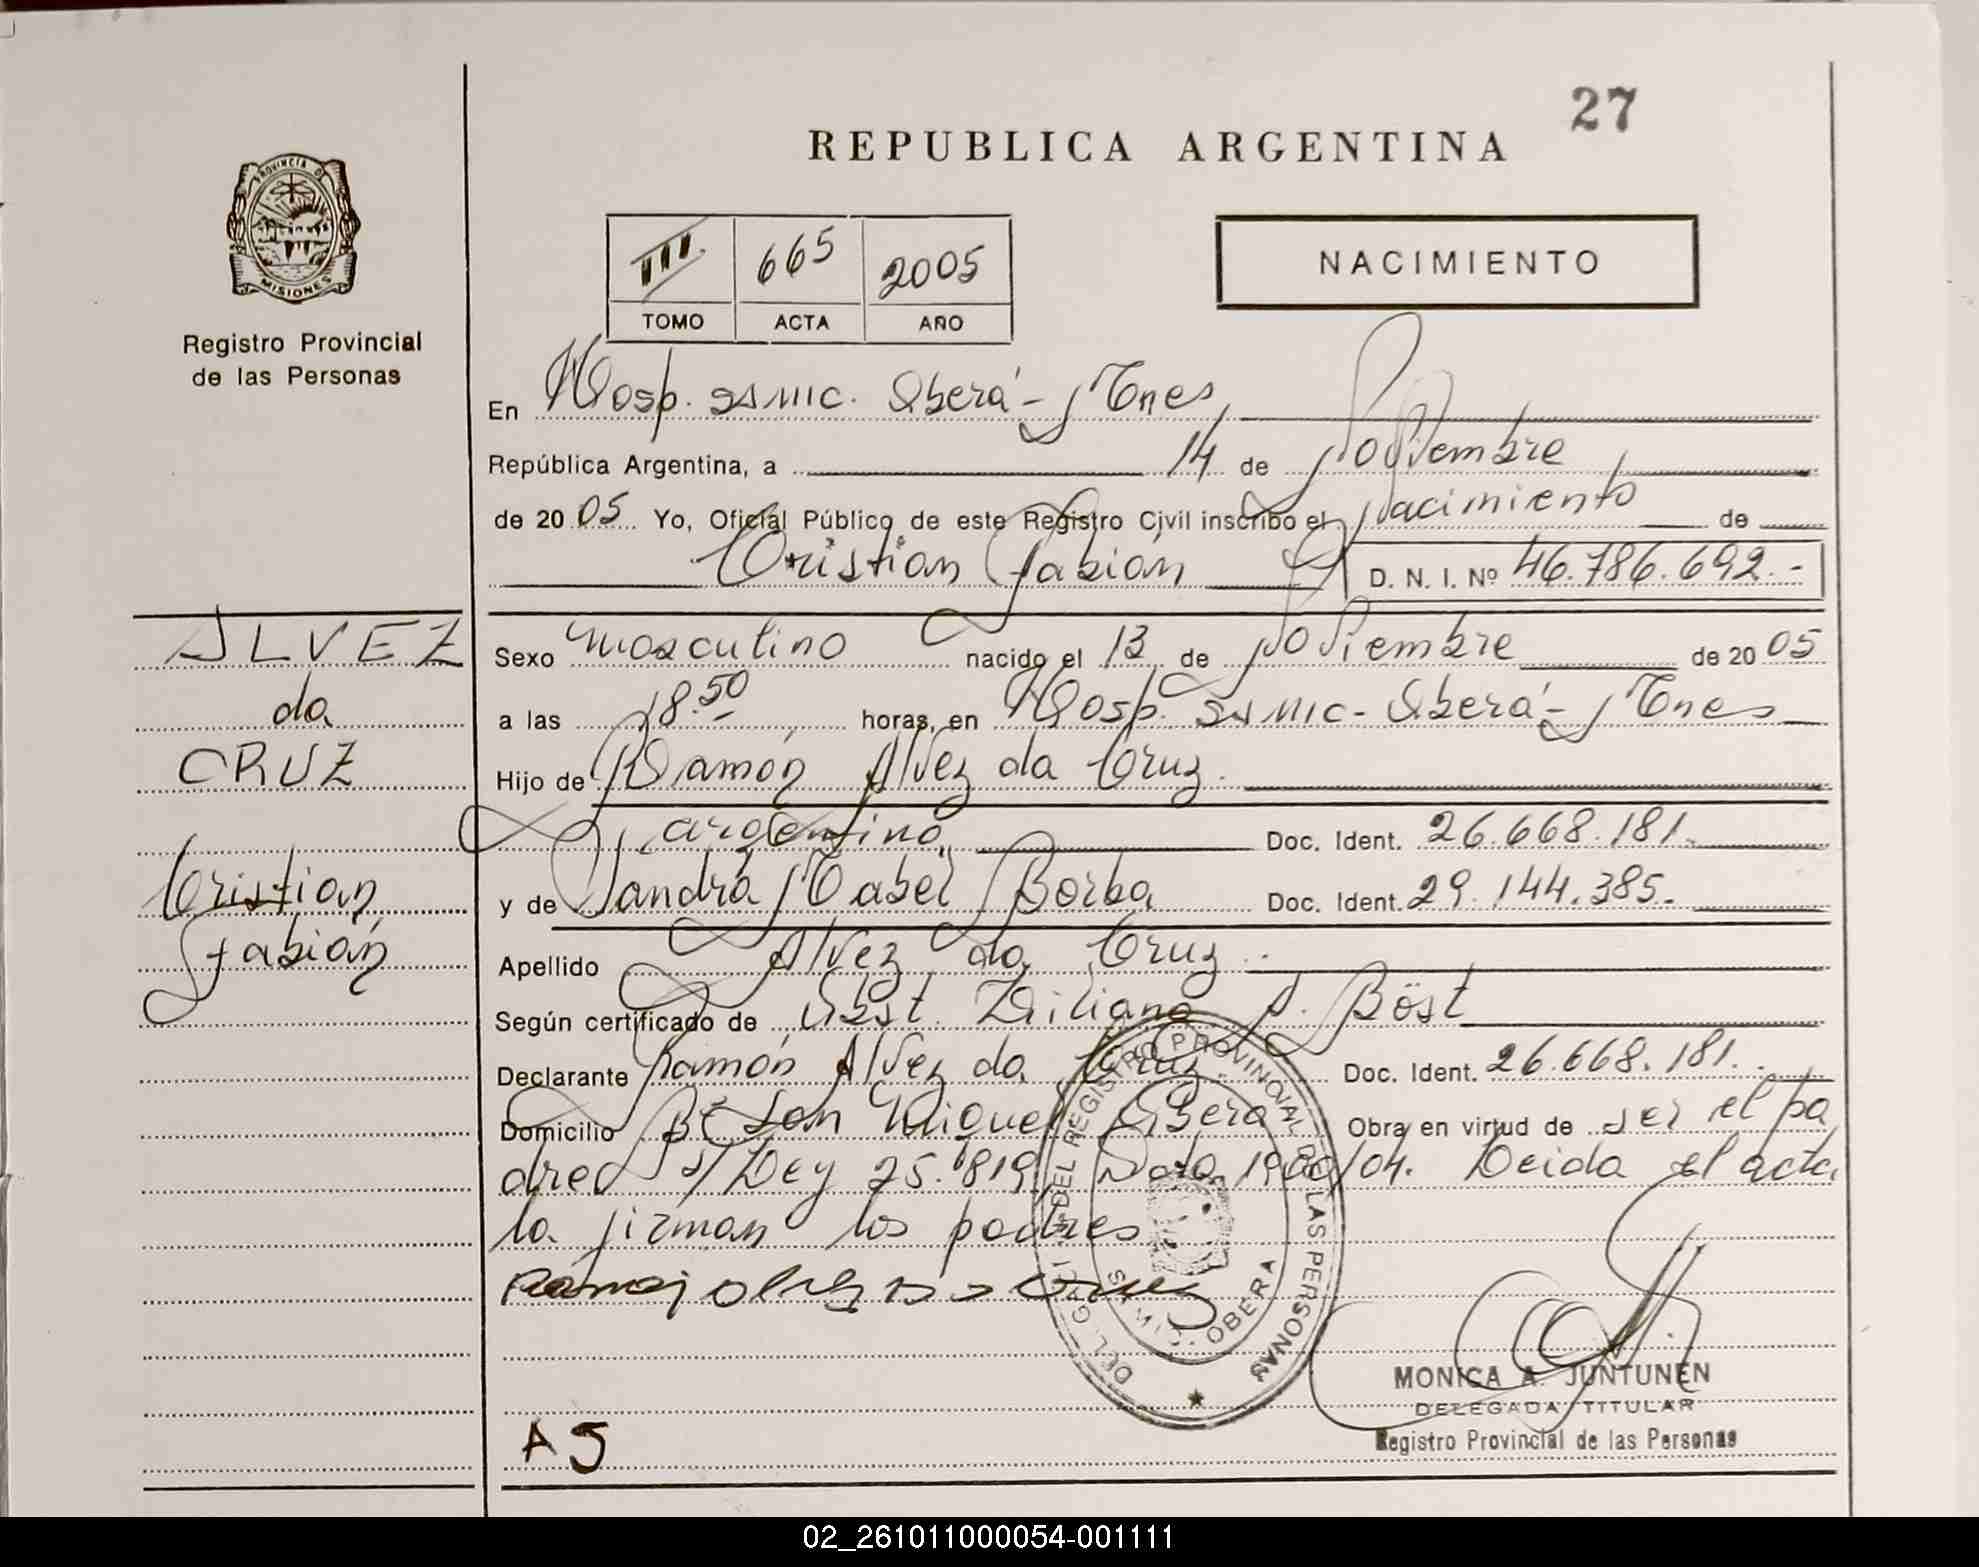 27
REPUBLICA ARGENTINA
PROVINCIA DE
MISIONES
Registro Provincial
de las Personas
III 665 2005
TOMO ACTA AÑO
NACIMIENTO
En Hosp. Samic. Oberá - Mnes,
República Argentina, a 14 de Noviembre
de 20 05 Yo, Oficial Público de este Registro Civil inscribo el Nacimiento de
Cristian Fabián D. N. I. Nº 46.786.692.-
ALVEZ
da
CRUZ
Cristian
Fabián
Sexo Masculino nacido el 13 de Noviembre de 20 05
a las 18.50 horas, en Hosp. Samic - Oberá - Mnes
Hijo de Ramón Alvez da Cruz.
argentino, Doc. Ident. 26.668.181.
y de Sandra Mabel Borba Doc. Ident. 29.144.385.-
Apellido Alvez da Cruz.-
Según certificado de Obst. Liliana A. Böst
Declarante Ramón Alvez da Cruz Doc. Ident. 26.668.181.-
Domicilio Bº San Miguel Oberá Obra en virtud de ser el pa
dre s/ Ley 25.819, Nota 1980/04. Leida el acta
la firman los padres
DEL REGISTRO PROVINCIAL DE LAS PERSONAS
OBERA
MONICA A. JUNTUNEN
DELEGADA TITULAR
Registro Provincial de las Personas
02_261011000054-001111